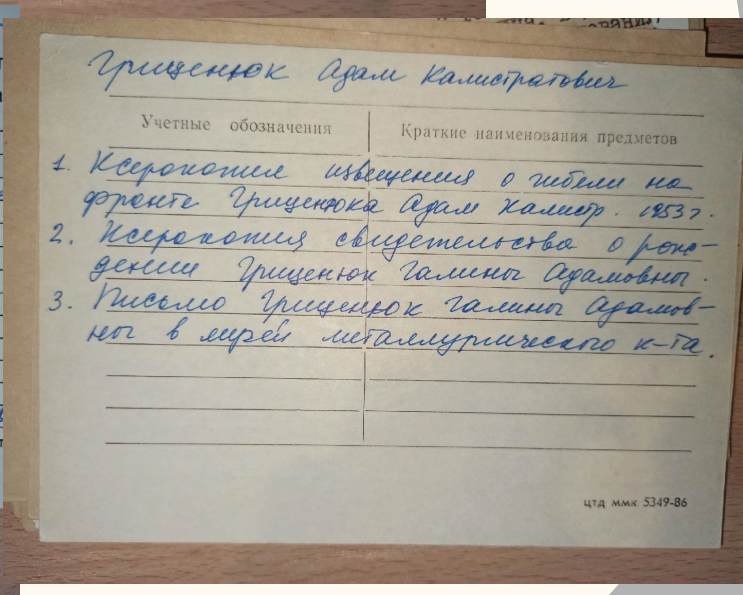 Грищенюк Адам Калистратович
Учетные обозначения
Краткие наименования предметов
1. Ксерокопия извещения о гибели на
фронте Грищенюка Адам Калистр. 1953 г.
2. Ксерокопия свидетельства о рож-
дении Грищенюк Галины Адамовны.
3. Письмо Грищенюк Галины Адамов-
ны в музей металлургического к-та.
цтд ммк 5349-86